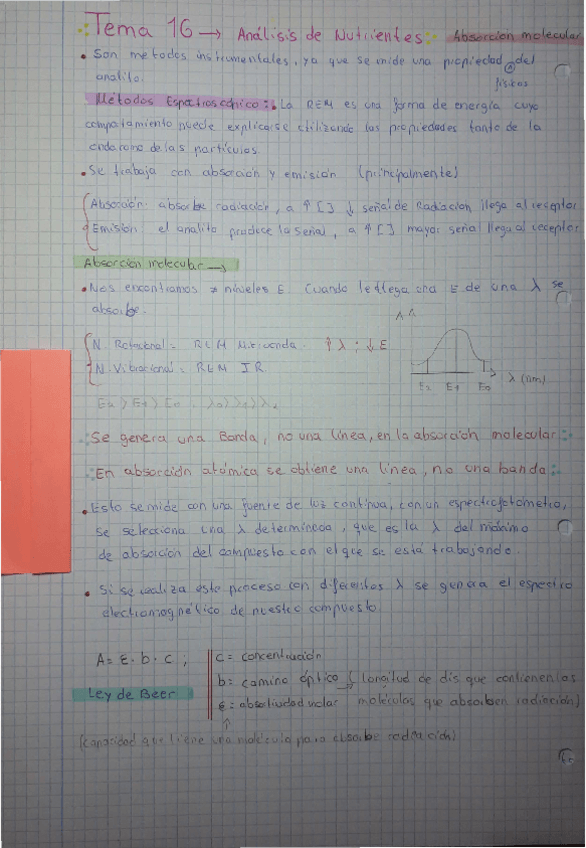 Tema 16 → Análisis de Nutrientes: Absorción molecular
• Son metodos instrumentales, ya que se mide una propiedad del
analito. físicas
Métodos Espectroscópico: La REM es una forma de energía cuyo
compotamiento puede explicarse utilizando las propiedades tanto de la
onda como de las partículas.
• Se trabaja con absorción y emisión (principalmente)
Absorción: absorbe radiación, a ↑ [ ] ↓ señal de Radiacion llega al receptor
Emisión: el analito produce la señal, a ↑ [ ] mayor señal llega al receptor
Absorcion molecular →
• Nos encontramos ≠ niveles E. Cuando le llega una E de una λ se
absorbe.
N. Rotacional = REM Microonda. ↑ λ ; ↓ E
N. Vibracional = REM IR
E₂ E₁ E₀ λ (nm)
E₂ > E₁ > E₀ λ₀ > λ₁ > λ₂
Se genera una Banda, no una línea, en la absorción molecular.
En absorción atómica se obtiene una línea, no una banda.
• Esto se mide con una fuente de luz continua, con un espectrofotometro,
se selecciona una λ determinada, que es la λ del máximo
de absorción del compuesto con el que se está trabajando.
• Si se realiza este proceso con diferentes λ se genera el espectro
electromagnético de nuestro compuesto.
A = ε · b · c ; c = concentración
b = camino óptico (longitud de dis que contienen las
Ley de Beer ε = absortividad molar moléculas que absorben radiación)
(capacidad que tiene una molécula para absorbe radiación)